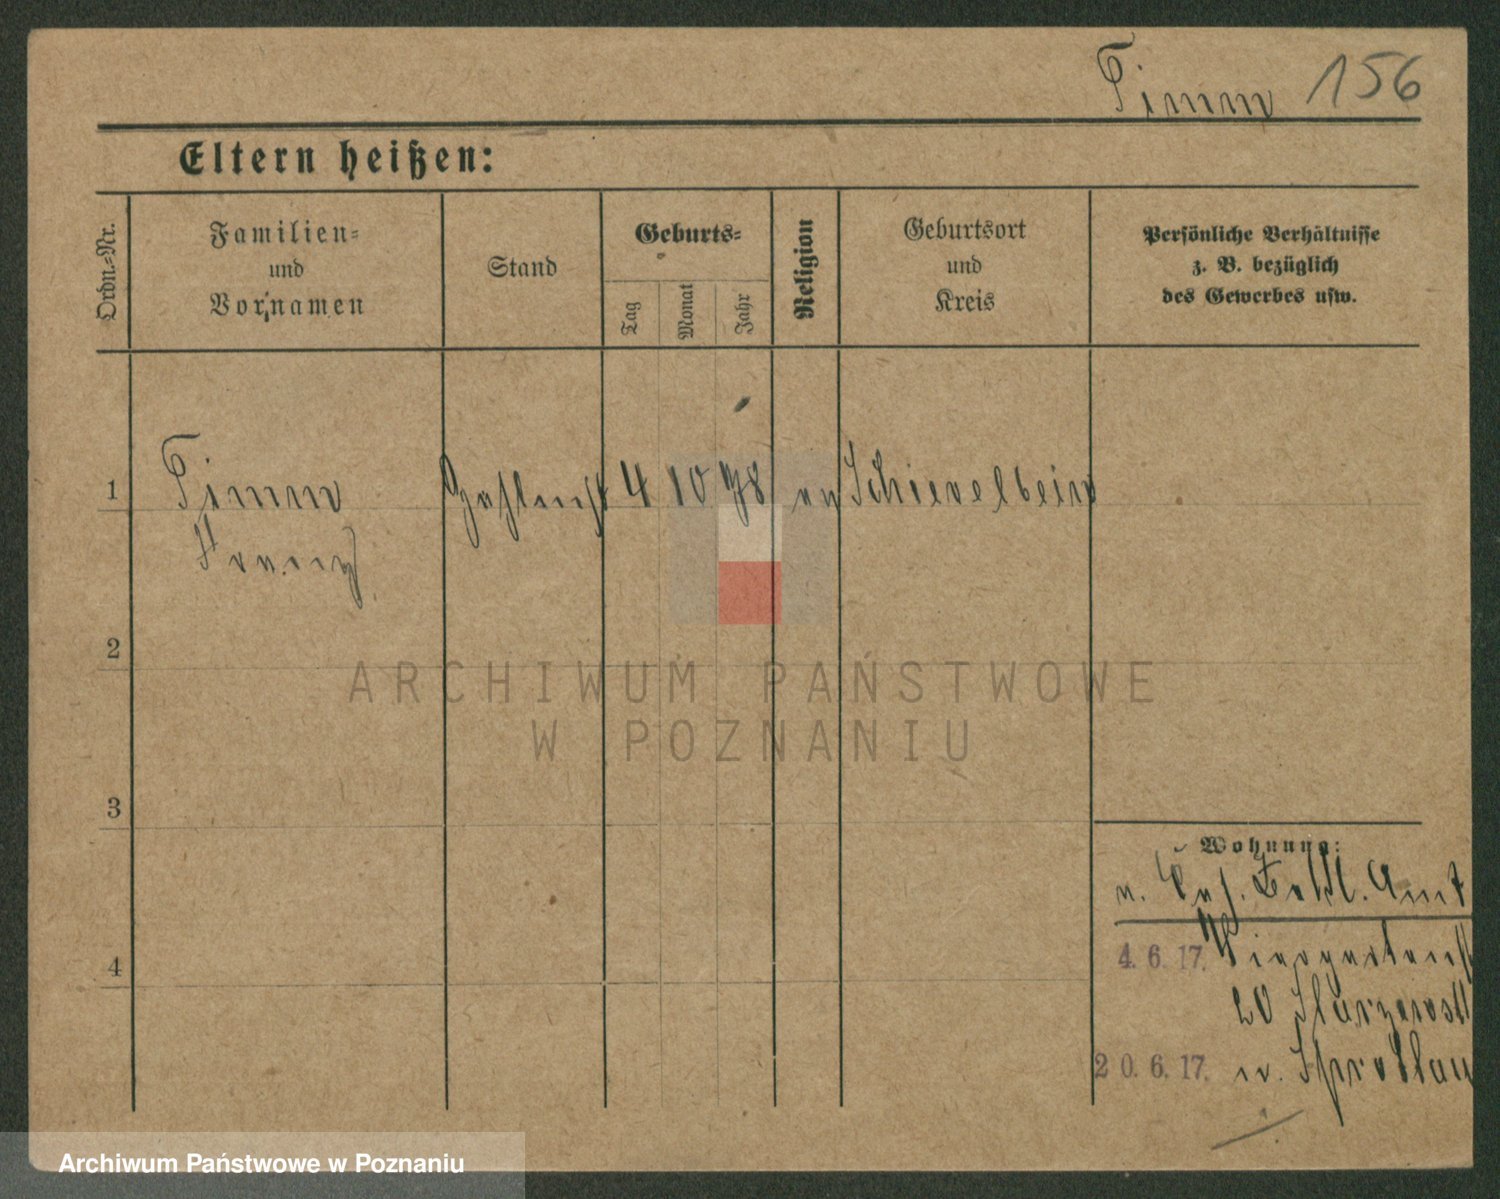 Timm 156
Eltern heißen:
Ordn.-Nr.
Familien-
und
Vor-namen
Stand
Geburts-
Tag
Monat
Jahr
Religion
Geburtsort
und
Kreis
Persönliche Verhältnisse
z. B. bezüglich
des Gewerbes usw.
1 Timm 4 10 78 ev Schievelbein
Franz
2
3
4
ARCHIWUM PAŃSTWOWE
W POZNANIU
Wohnung:
v. Amt
4. 6. 17.
20
20. 6. 17. n. Sprottau
Archiwum Państwowe w Poznaniu